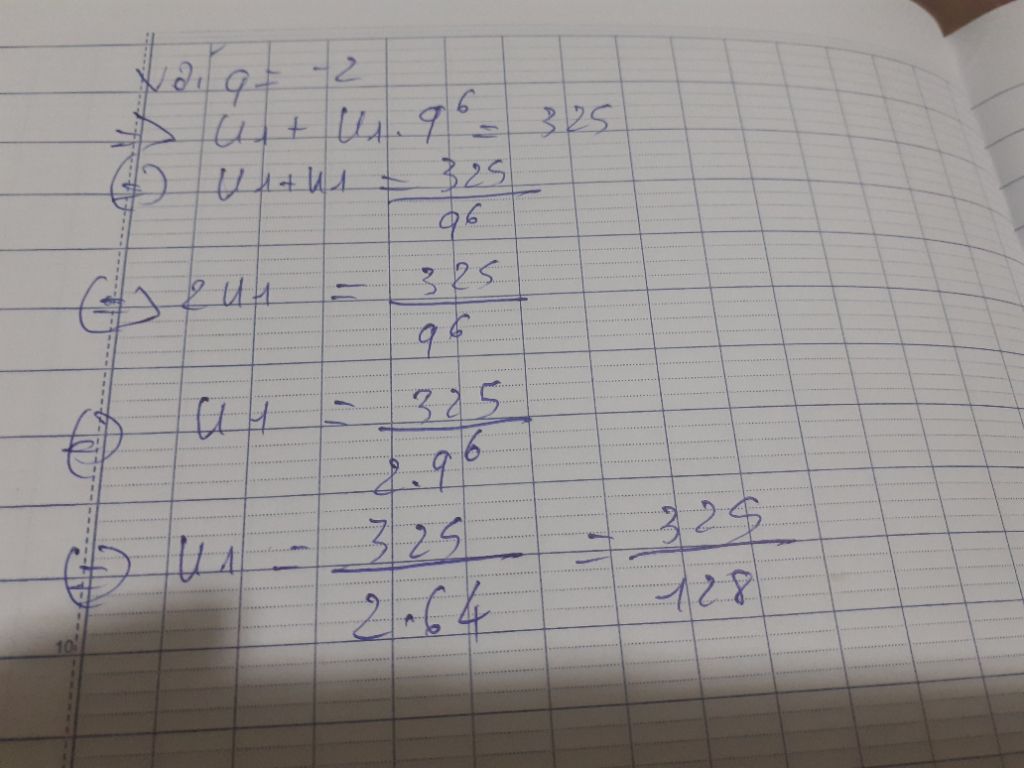 Với q = -2
=> U1 + U1.q^6 = 325
<=> U1+U1 = 325/q^6
<=> 2U1 = 325/q^6
<=> U1 = 325/2.q^6
<=> U1 = 325/2.64 = 325/128
10